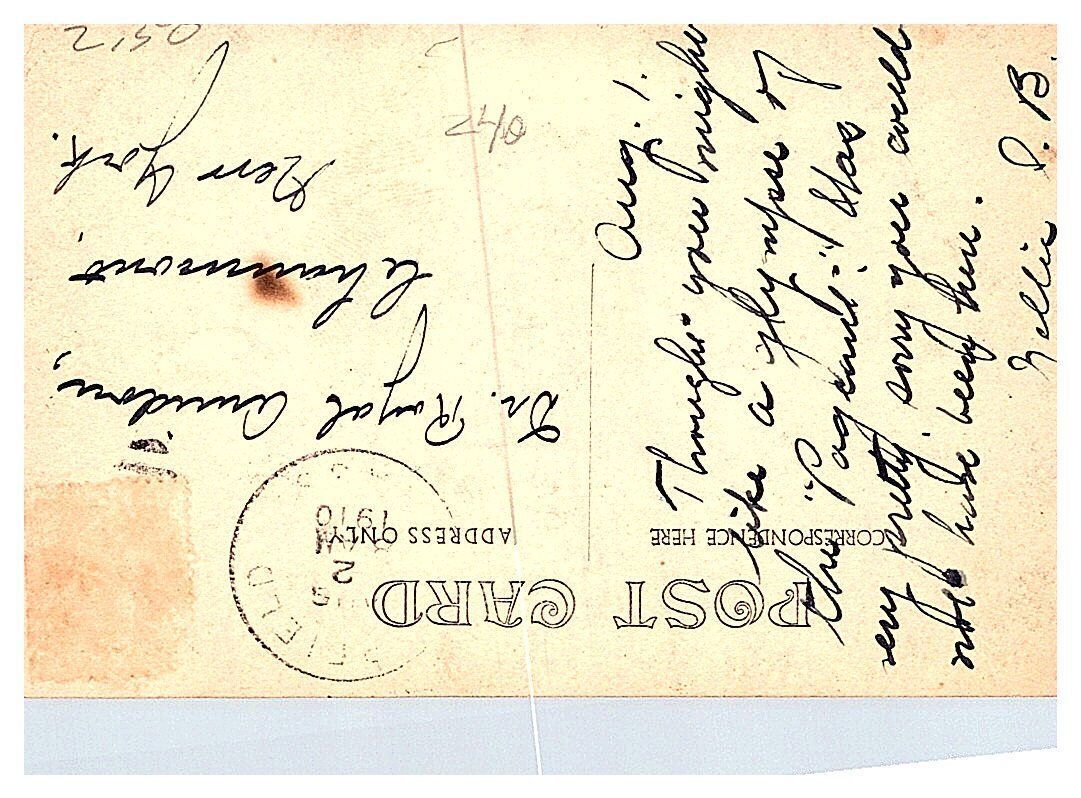 POST CARD
CORRESPONDENCE HERE
ADDRESS ONLY
Aug. 1.
Thought you might
like a glympse of
the "Pageant." Was
very pretty sorry you could
not have been here.
Nellie S. B.
Dr. Royal Amidon,
Chaumont,
New York.
2
1910
2.50